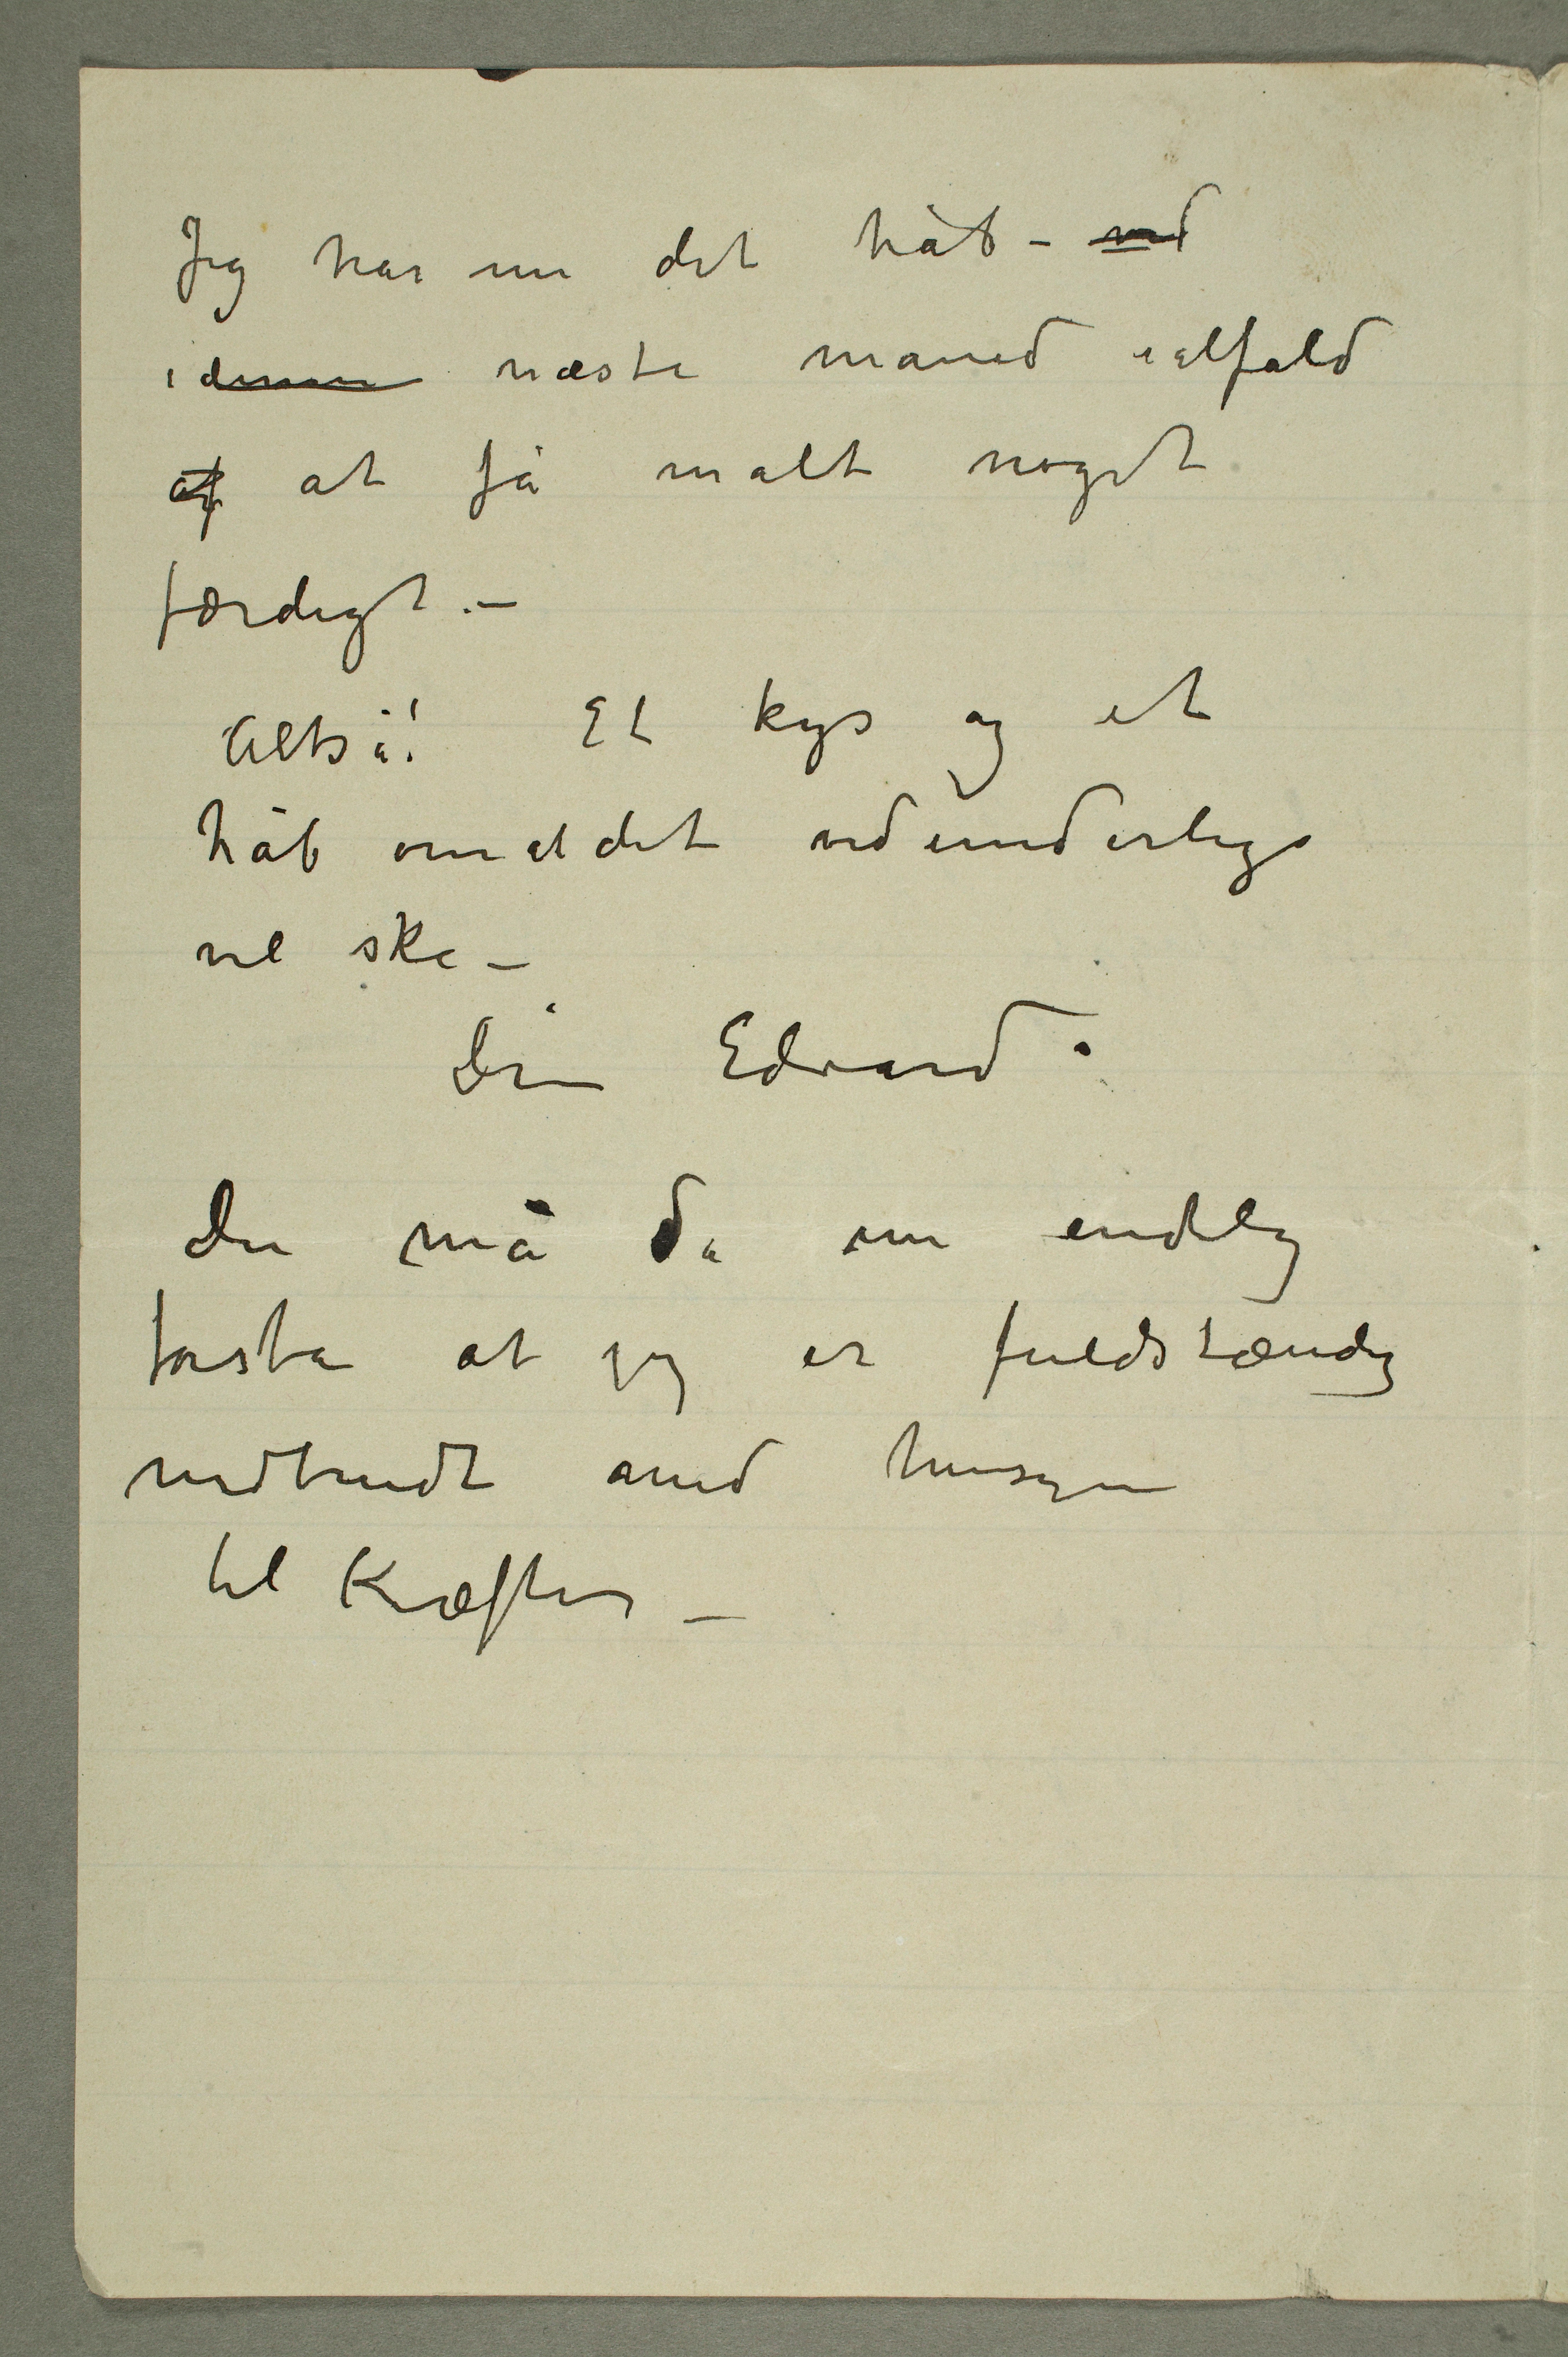 Jeg har nu det håb – ved
i denne næste maaned ialfald
af at få malt noget
færdigt. –
Altså! Et kys og et
håb om at det vidunderlige
vil ske –
Din Edvard
Du må da nu endelig
forstå at jeg er fuldstændig
nedbrudt med hensyn
til Kræfter –